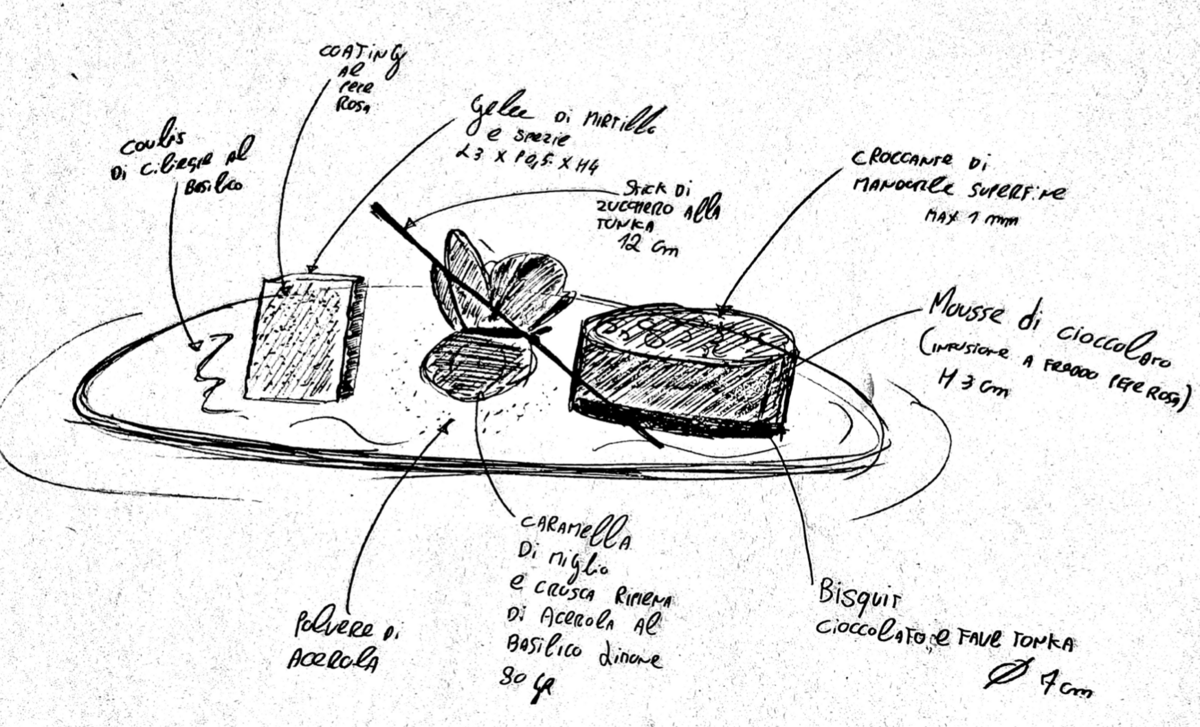 COATING
AL
PEPE
ROSA
Gelee DI MIRTILLO
E SPEZIE
L3 X P0,5 X H4
COULIS
DI CILIEGIE AL
BASILICO
STICK DI
ZUCCHERO ALLA
TONKA
12 cm
CROCCANTE DI
MANDORLE SUPERFINE
MAX 1 mm
Mousse di cioccolato
(INFUSIONE A FREDDO PEPE ROSA)
H 3 cm
CARAMELLA
DI MIGLIO
E CRUSCA RIPIENA
DI ACEROLA AL
BASILICO LIMONE
80 gr
POLVERE DI
ACEROLA
BISQUIT
CIOCCOLATO E FAVE TONKA
Ø 7 cm